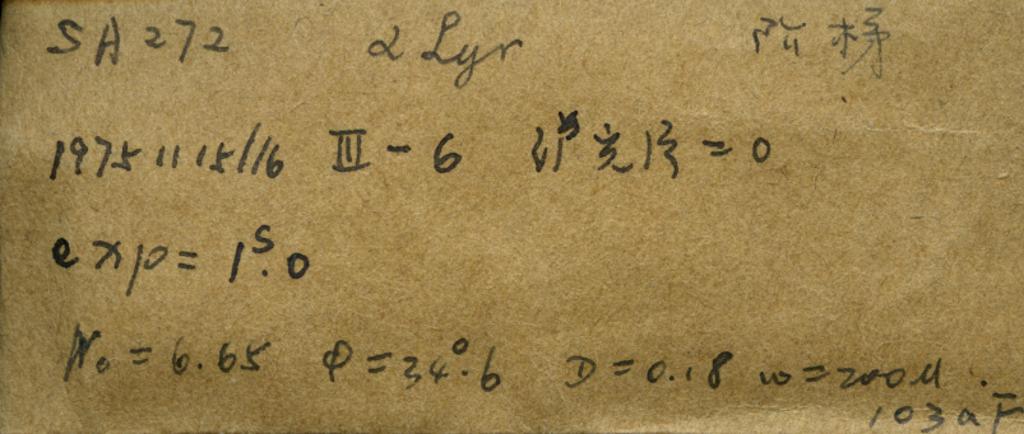 SA272 α Lyr 阶梯
1975 11 15/16 III-6 滤光片=0
exp=1ˢ.0
N₀=6.65 Φ=34°.6 D=0.18 w=200μ.
103aF